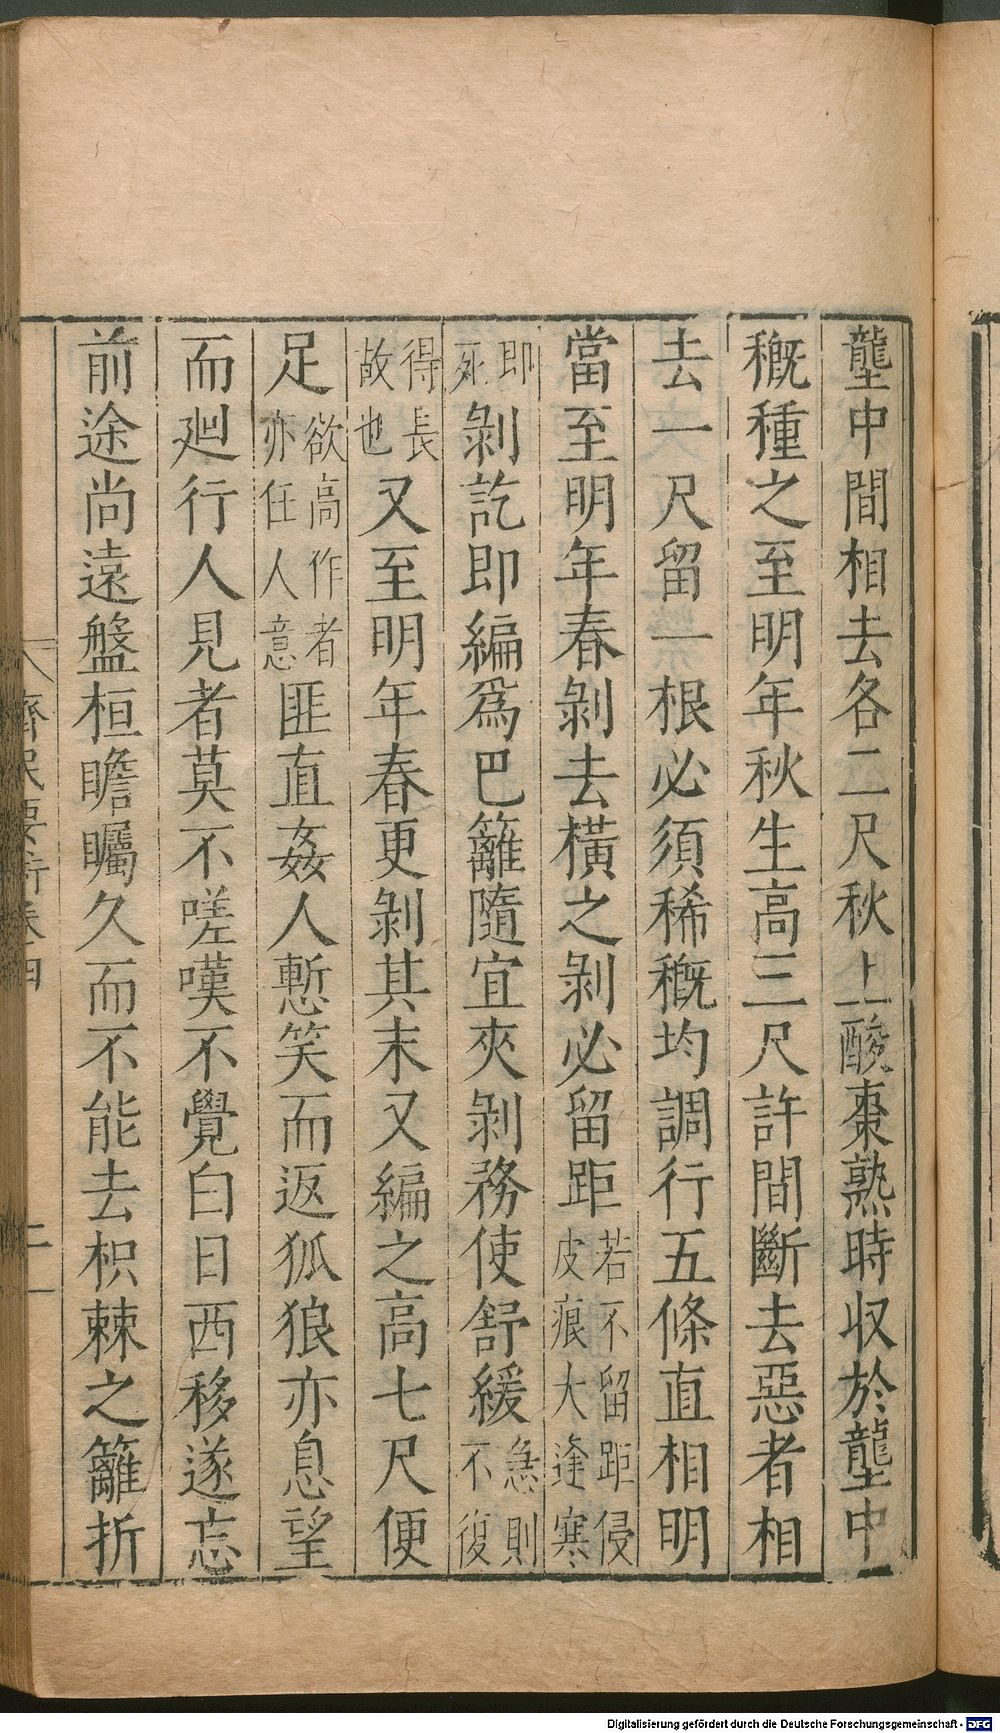 壟中間相去各二尺秋上酸棗熟時収於壟中
穊種之至明年秋生高三尺許間斷去惡者相
去一尺留一根必須稀穊均調行五條直相明
當至明年春剝去橫之剝必留距若不留距侵皮痕大逢寒
即死剝訖即編爲巴籬隨宜夾剝務使舒緩急則不復
得長故也又至明年春更剝其末又編之高七尺便
足欲高作者亦任人意匪直姦人慙笑而返狐狼亦息望
而𢌞行人見者莫不嗟嘆不覺白日西移遂忘
前途尚遠盤桓瞻矚久而不能去枳棘之籬折
齊民要術卷四
二
Digitalisierung gefördert durch die Deutsche Forschungsgemeinschaft - DFG